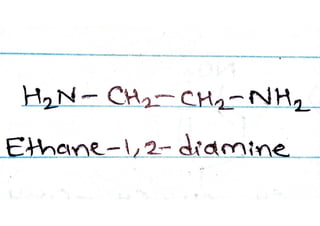 H₂N – CH₂ – CH₂ – NH₂
Ethane-1,2-diamine